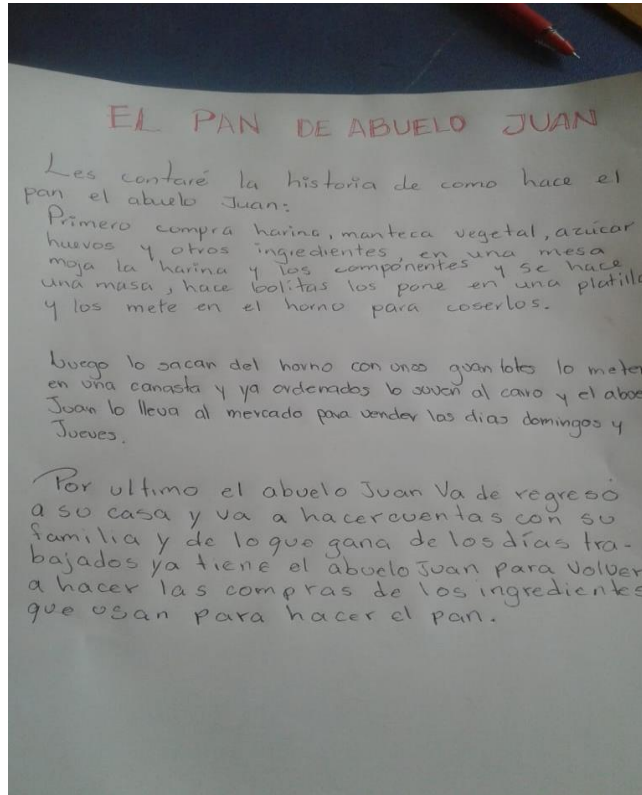 EL PAN DE ABUELO JUAN
Les contaré la historia de como hace el
pan el abuelo Juan:
Primero compra harina, manteca vegetal, azúcar
huevos y otros ingredientes, en una mesa
moja la harina y los componentes y se hace
una masa, hace bolitas los pone en una platilla
y los mete en el horno para coserlos.
Luego lo sacan del horno con unos guantotes lo meten
en una canasta y ya ordenados lo suven al carro y el abue
Juan lo lleva al mercado para vender los dias domingos y
Jueves.
Por ultimo el abuelo Juan Va de regresó
a su casa y va a hacer cuentas con su
familia y de lo que gana de los días tra-
bajados ya tiene el abuelo Juan para volver
a hacer las compras de los ingredientes
que usan para hacer el pan.